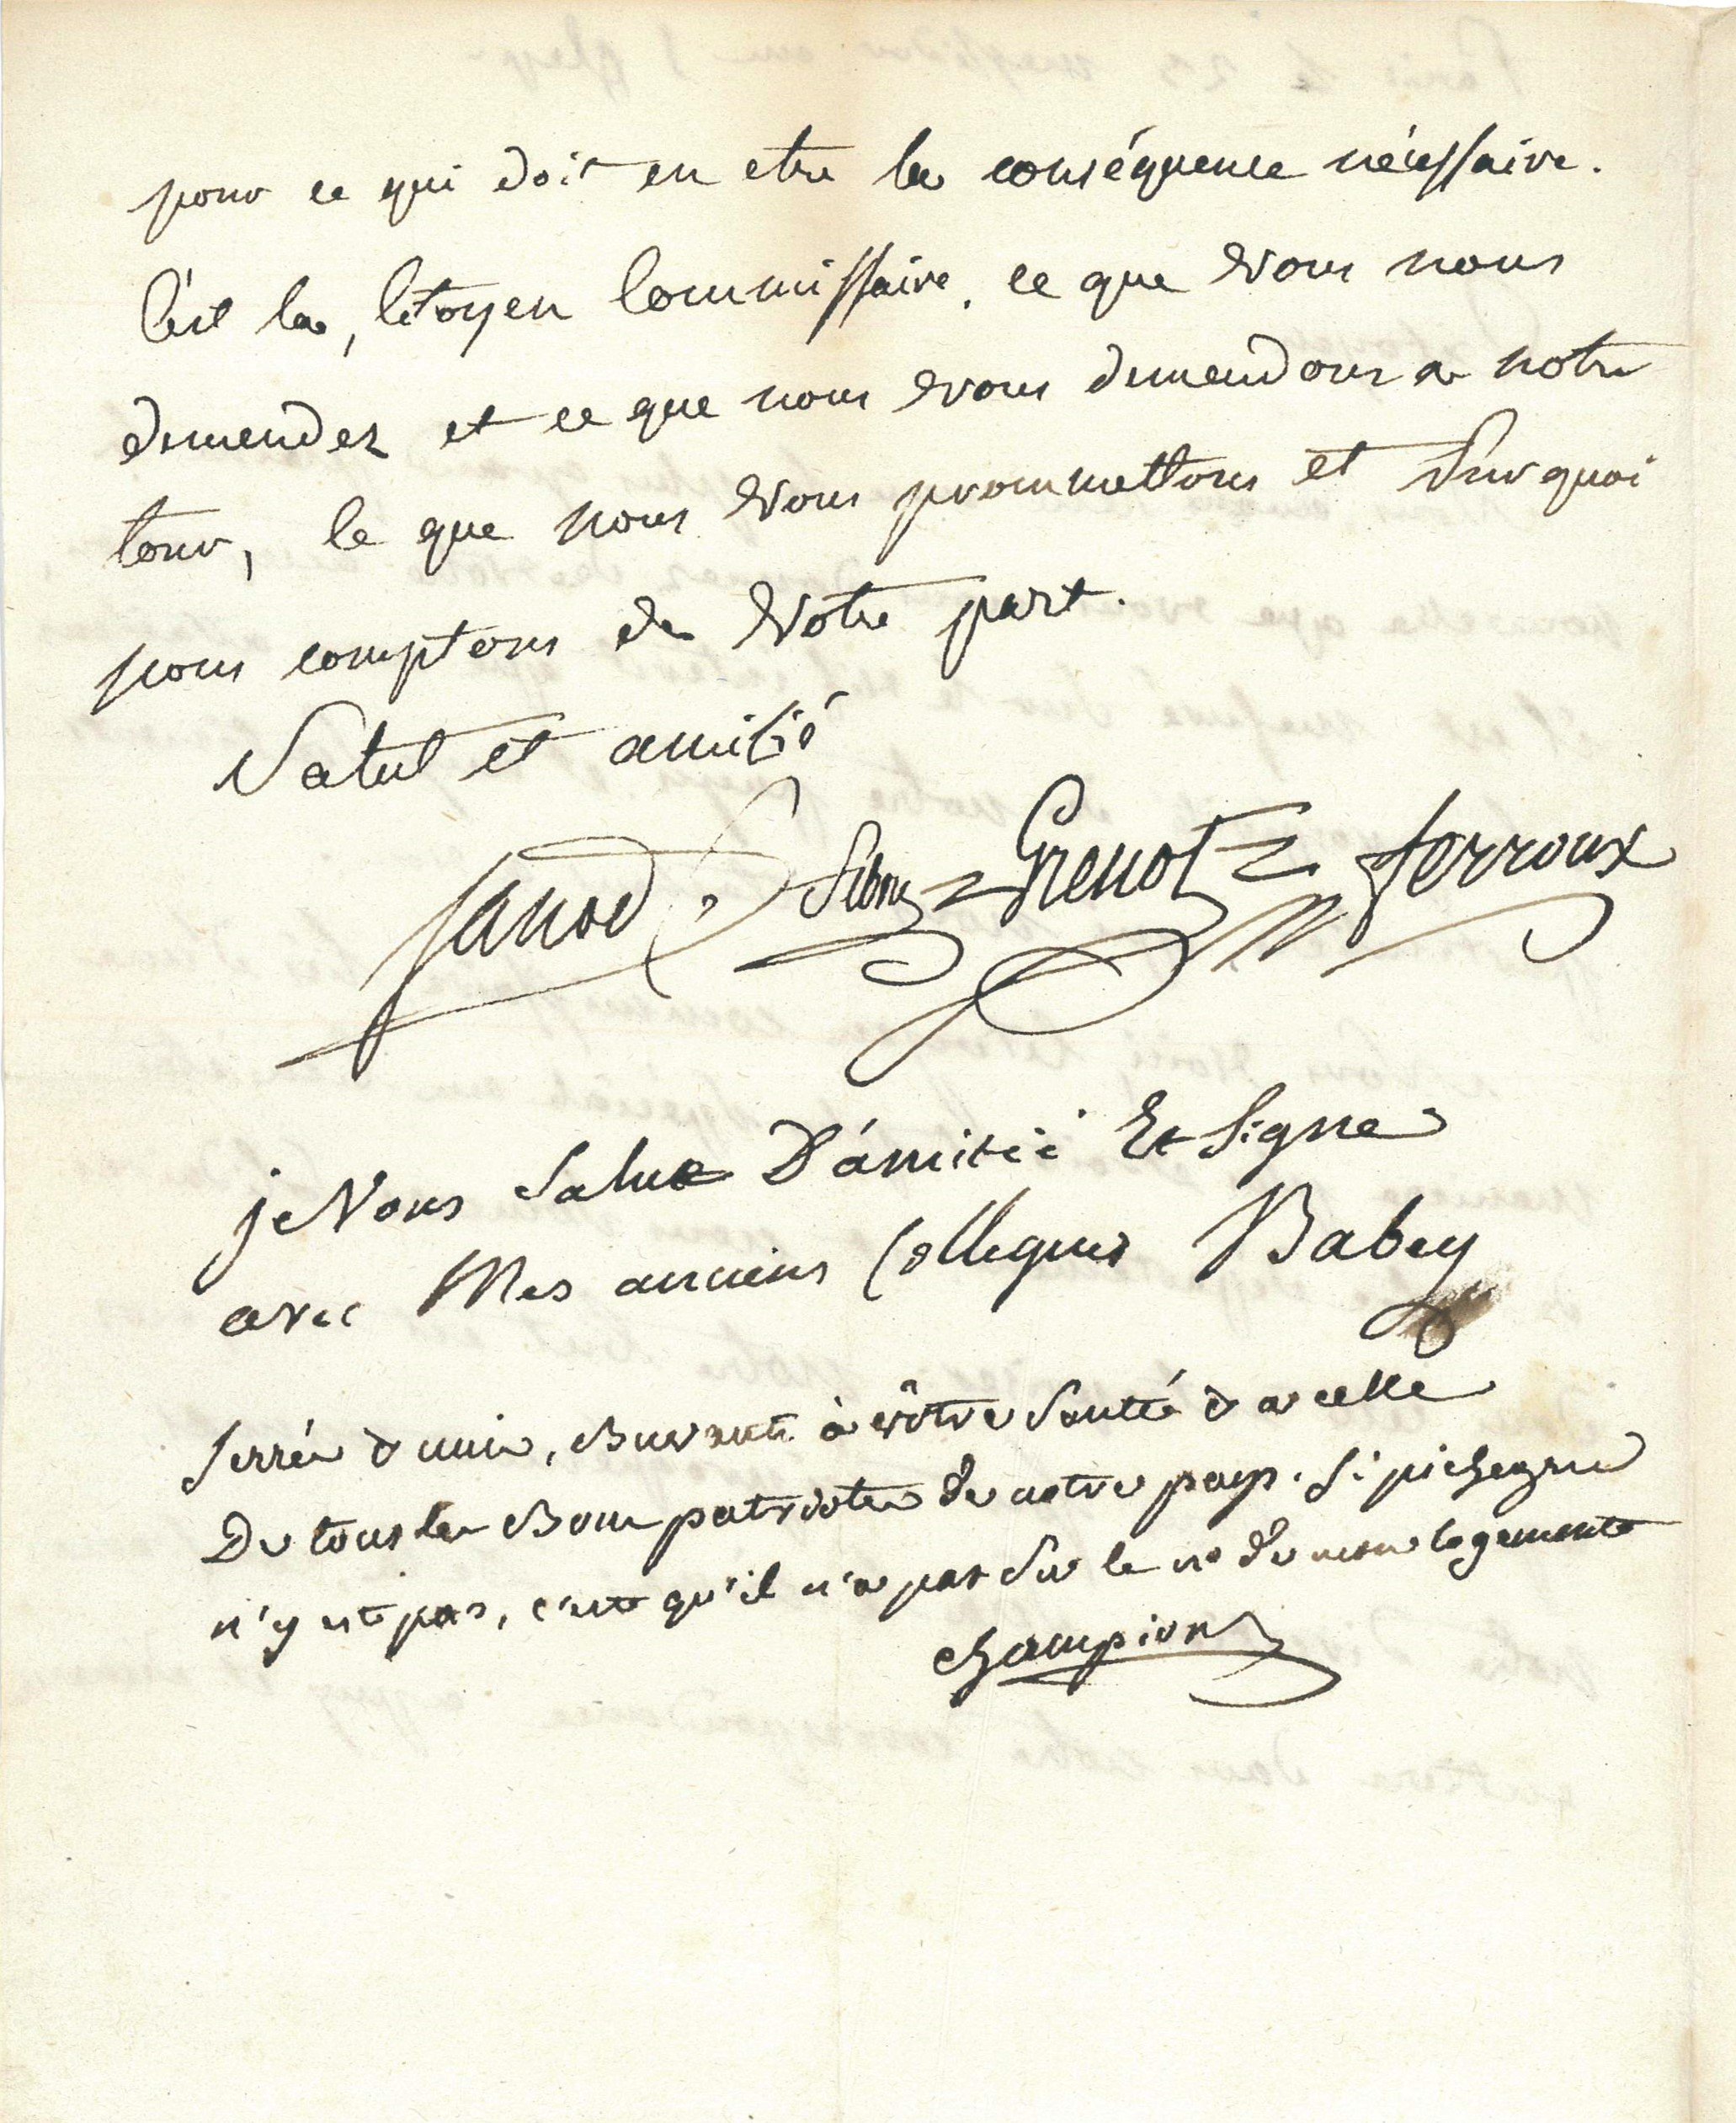 pour ce qui doit en etre la conséquence nécessaire.
C'est la, Citoyen Commissaire, ce que vous nous
demendez et ce que nous vous demendons a notre
tour, Ce que nous vous prommettons et Sur quoi
nous comptons de votre part.
Salut et amitié
Janod Grenot ferroux
je Vous Salue D'ámitié Et Signe
avec Mes anciens Collegues Babey
Buvant à vôtre Santté & a celle
De tous les Bons patriotes de notre pays. Si pichegru
n'y est pas, c'est qu'il n'a pas Su le n° de mon logement
champion